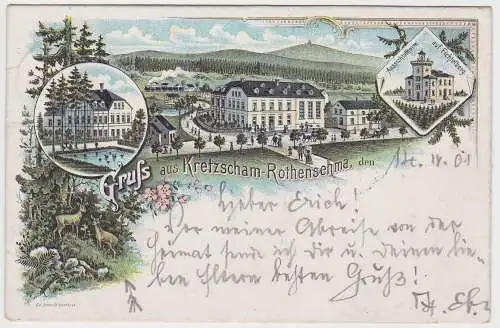 Aussichtsthurm auf Fichtelberg
Gruß aus Kretzscham-Rothensehma, den 14. IV. 01
Lieber Erich!
Vor meiner Abreise von der
Heimat sende ich dir u. deinen lie-
ben Eltern besten Gruß!